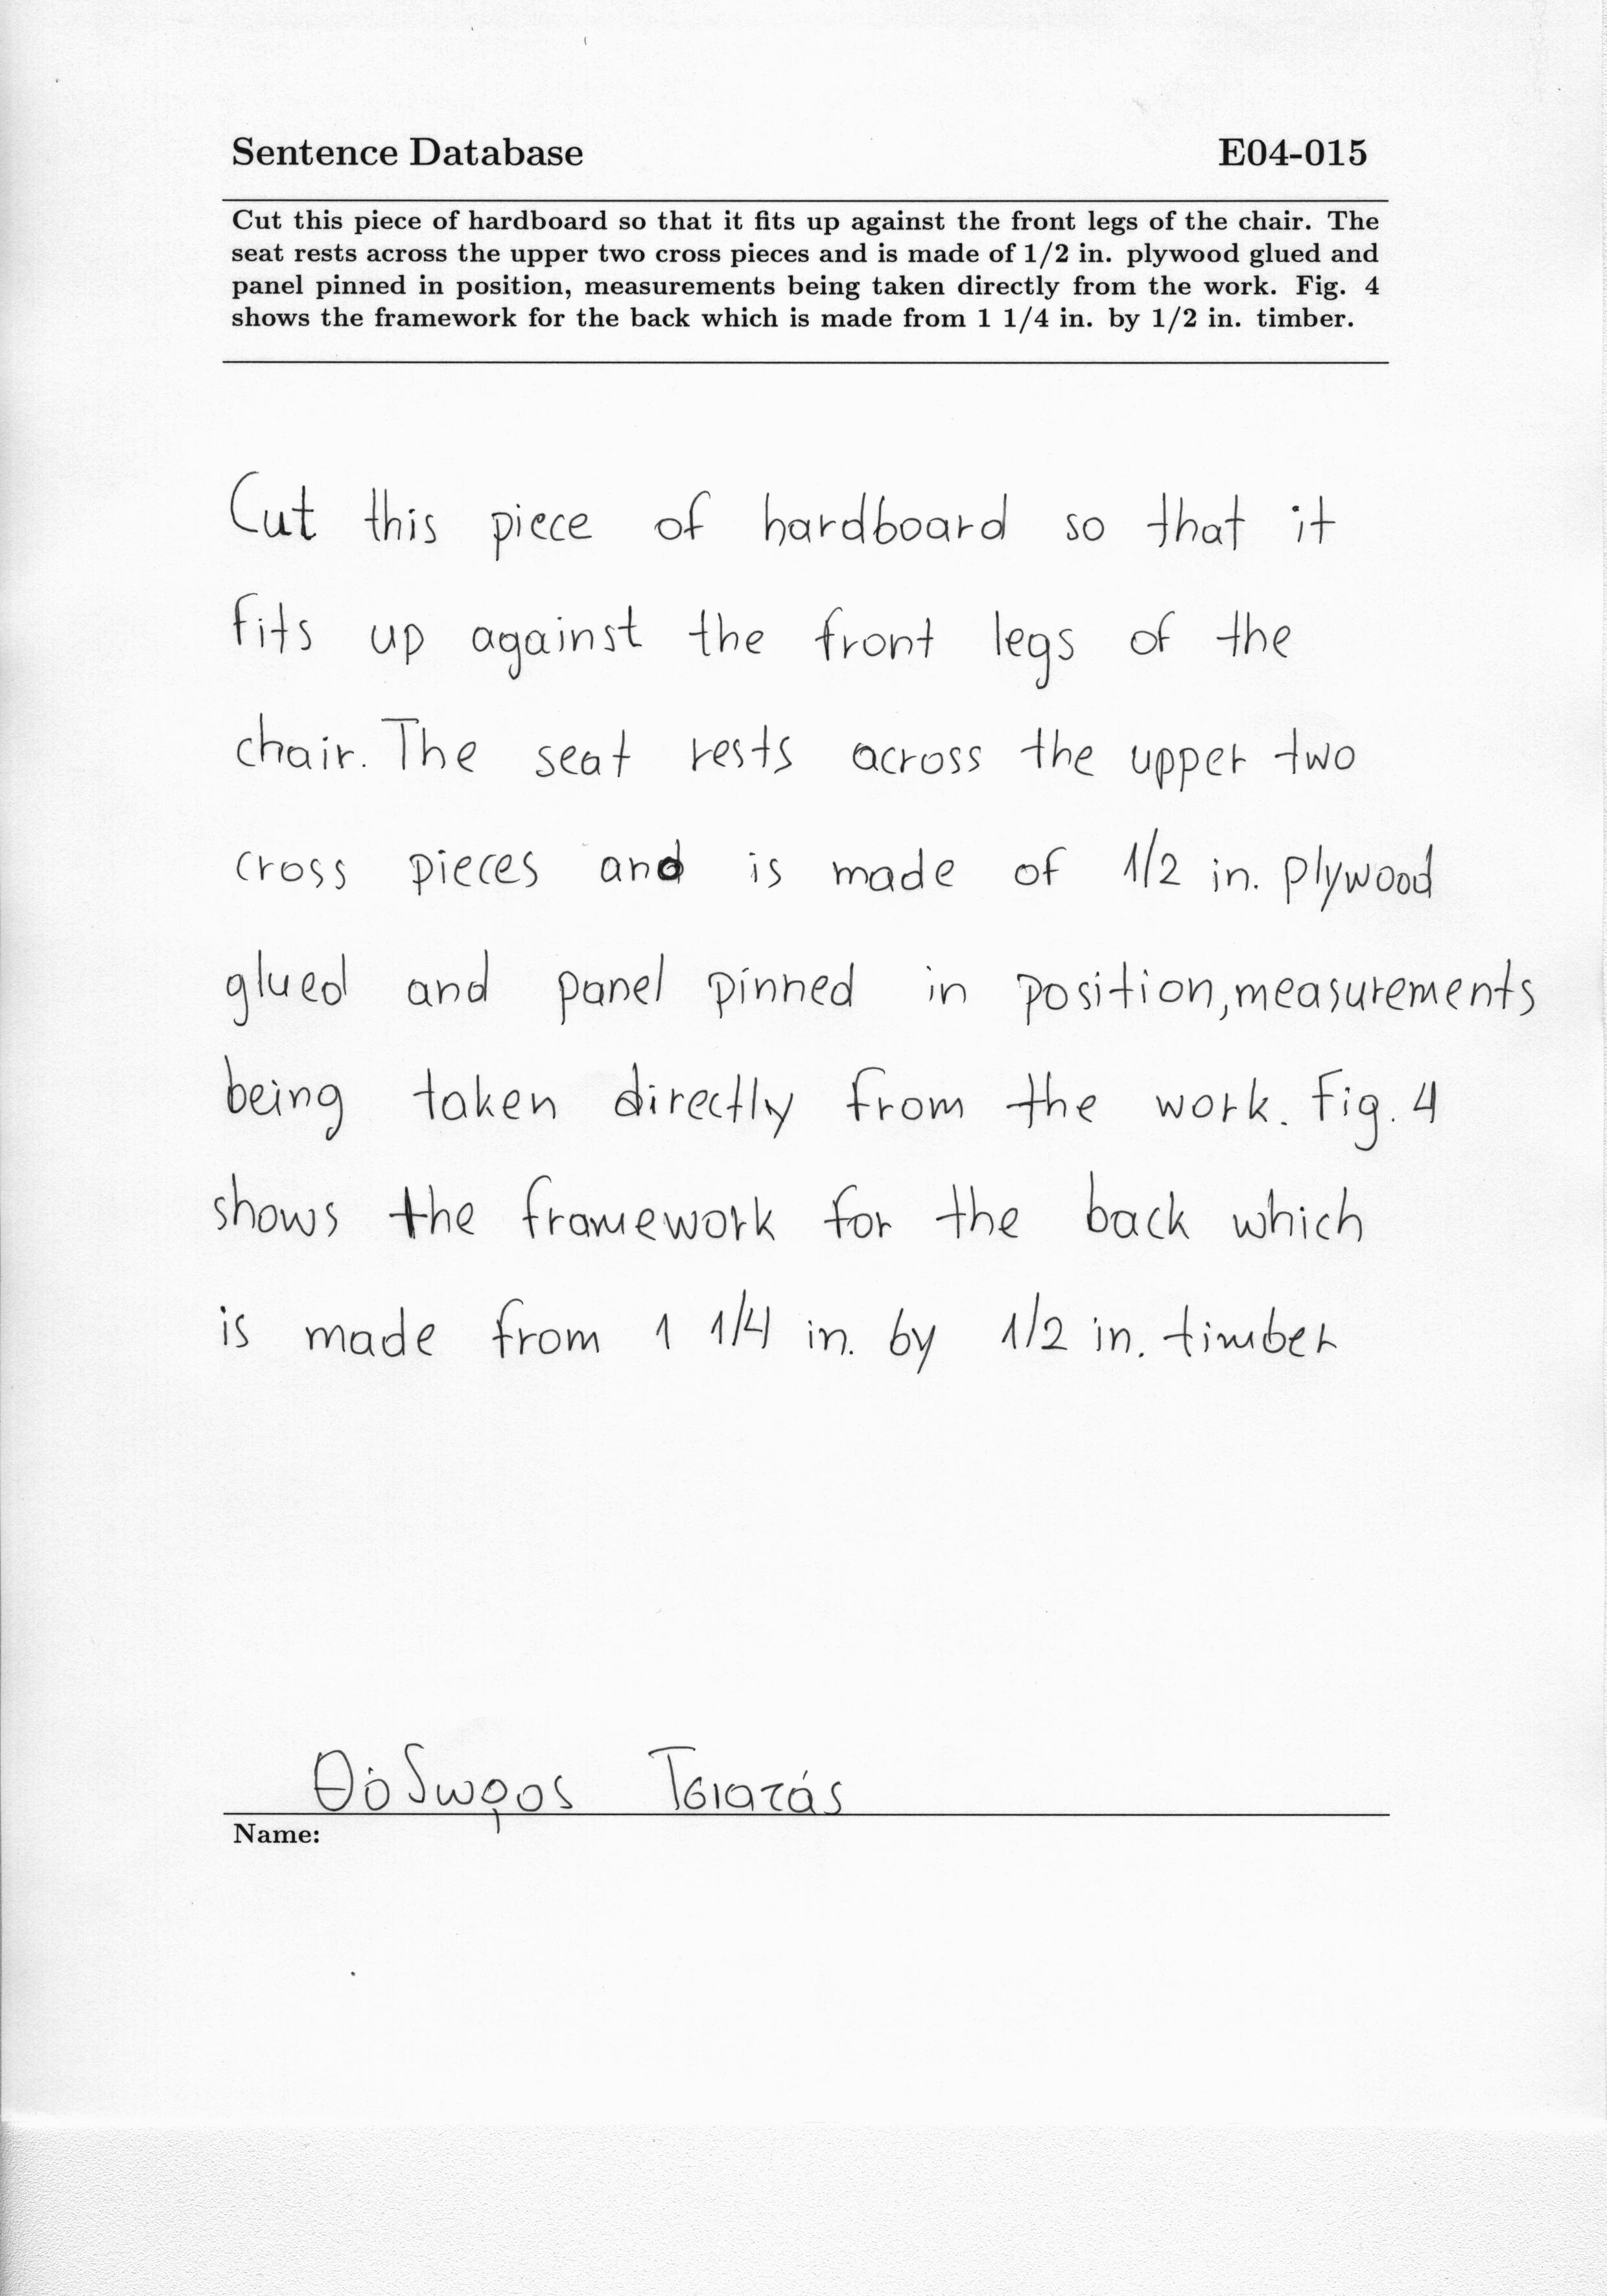 Sentence Database E04-015
Cut this piece of hardboard so that it fits up against the front legs of the chair. The
seat rests across the upper two cross pieces and is made of 1/2 in. plywood glued and
panel pinned in position, measurements being taken directly from the work. Fig. 4
shows the framework for the back which is made from 1 1/4 in. by 1/2 in. timber.
Cut this piece of hardboard so that it
fits up against the front legs of the
chair. The seat rests across the upper two
cross pieces and is made of 1/2 in. plywood
glued and panel pinned in position, measurements
being taken directly from the work. Fig. 4
shows the framework for the back which
is made from 1 1/4 in. by 1/2 in. timber
Θόδωρος Τσιατάς
Name: